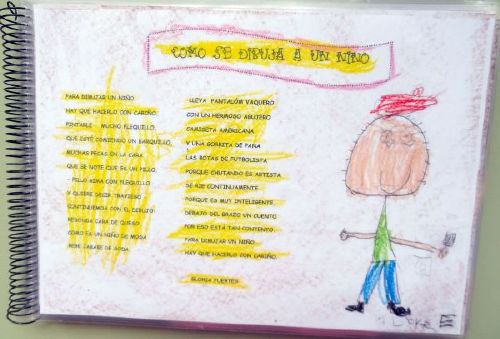 COMO SE DIBUJA A UN NIÑO
PARA DIBUJAR UN NIÑO
HAY QUE HACERLO CON CARIÑO.
PINTARLE MUCHO FLEQUILLO,
QUE ESTÉ COMIENDO UN BARQUILLO,
MUCHAS PECAS EN LA CARA
QUE SE NOTE QUE ES UN PILLO.
PILLO RIMA CON FLEQUILLO
Y QUIERE DECIR TRAVIESO
CONTINUEMOS CON EL DIBUJO:
REDONDA CARA DE QUESO
COMO ES UN NIÑO DE MODA
BEBE JARABE DE SODA
LLEVA PANTALÓN VAQUERO
CON UN HERMOSO AGUJERO
CAMISETA AMERICANA
Y UNA GORRITA DE PANA
LAS BOTAS DE FUTBOLISTA
PORQUE CHUTANDO ES ARTISTA
SE RIE CONTINUAMENTE
PORQUE ES MUY INTELIGENTE
DEBAJO DEL BRAZO UN CUENTO
POR ESO ESTÁ TAN CONTENTO
PARA DIBUJAR UN NIÑO
HAY QUE HACERLO CON CARIÑO.
GLORIA FUERTES